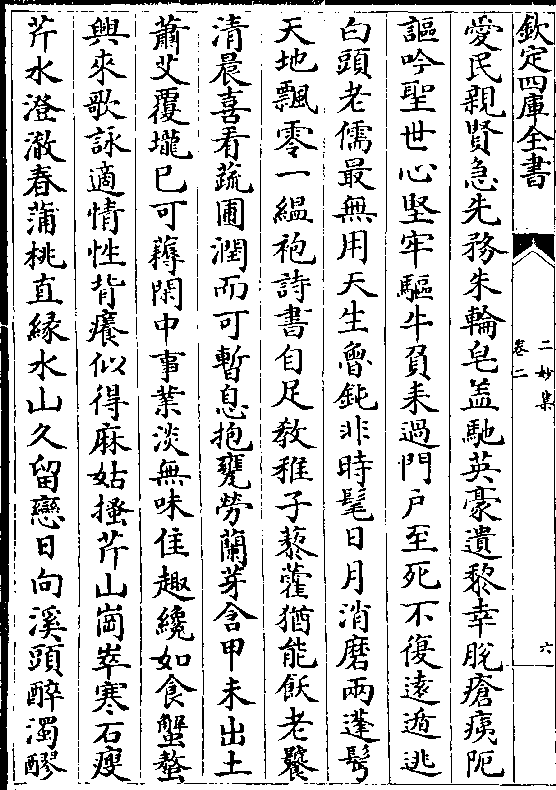 欽定四庫全書
二妙集
卷二
六
愛民親賢急先務朱輪皂盖馳英豪遺黎幸脱瘡痍阨
謳吟聖世心堅牢驅牛負耒過門戸至死不復遠遁逃
白頭老儒最無用天生魯鈍非時髦日月消磨兩蓬鬂
天地飄零一緼袍詩書自足教稚子藜藿猶能飫老饕
清晨喜看蔬圃潤而可暫息抱甕勞蘭芽含甲未出土
蕭艾覆壠已可薅閑中事業淡無味佳趣纔如食蟹螯
興來歌詠適情性背癢似得麻姑搔芹山崗崒寒石瘦
芹水澄澈春蒲桃直縁水山久留戀日向溪頭醉濁醪